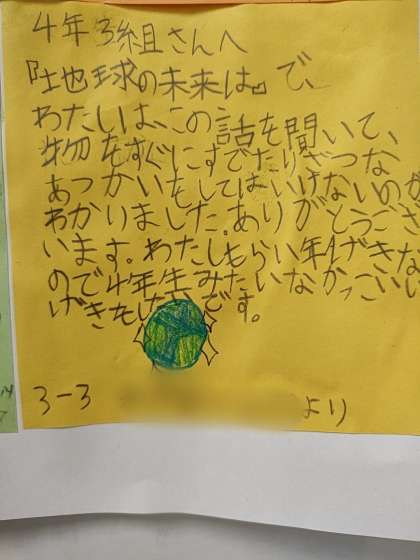 4年3組さんへ
『地球の未来は』で、
わたしは、この話を聞いて、
物をすぐにすてたりざつな
あつかいをしてはいけないのが
わかりました。ありがとうござ
います。わたしもらい年げきな
ので4年生みたいなかっこいい
げきをしたいです。
3-3 より